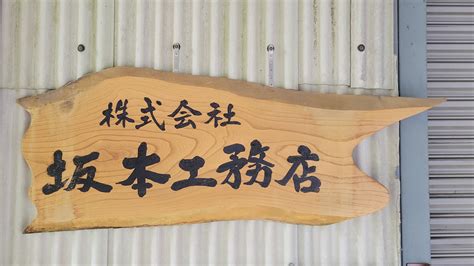 株式会社
坂本工務店